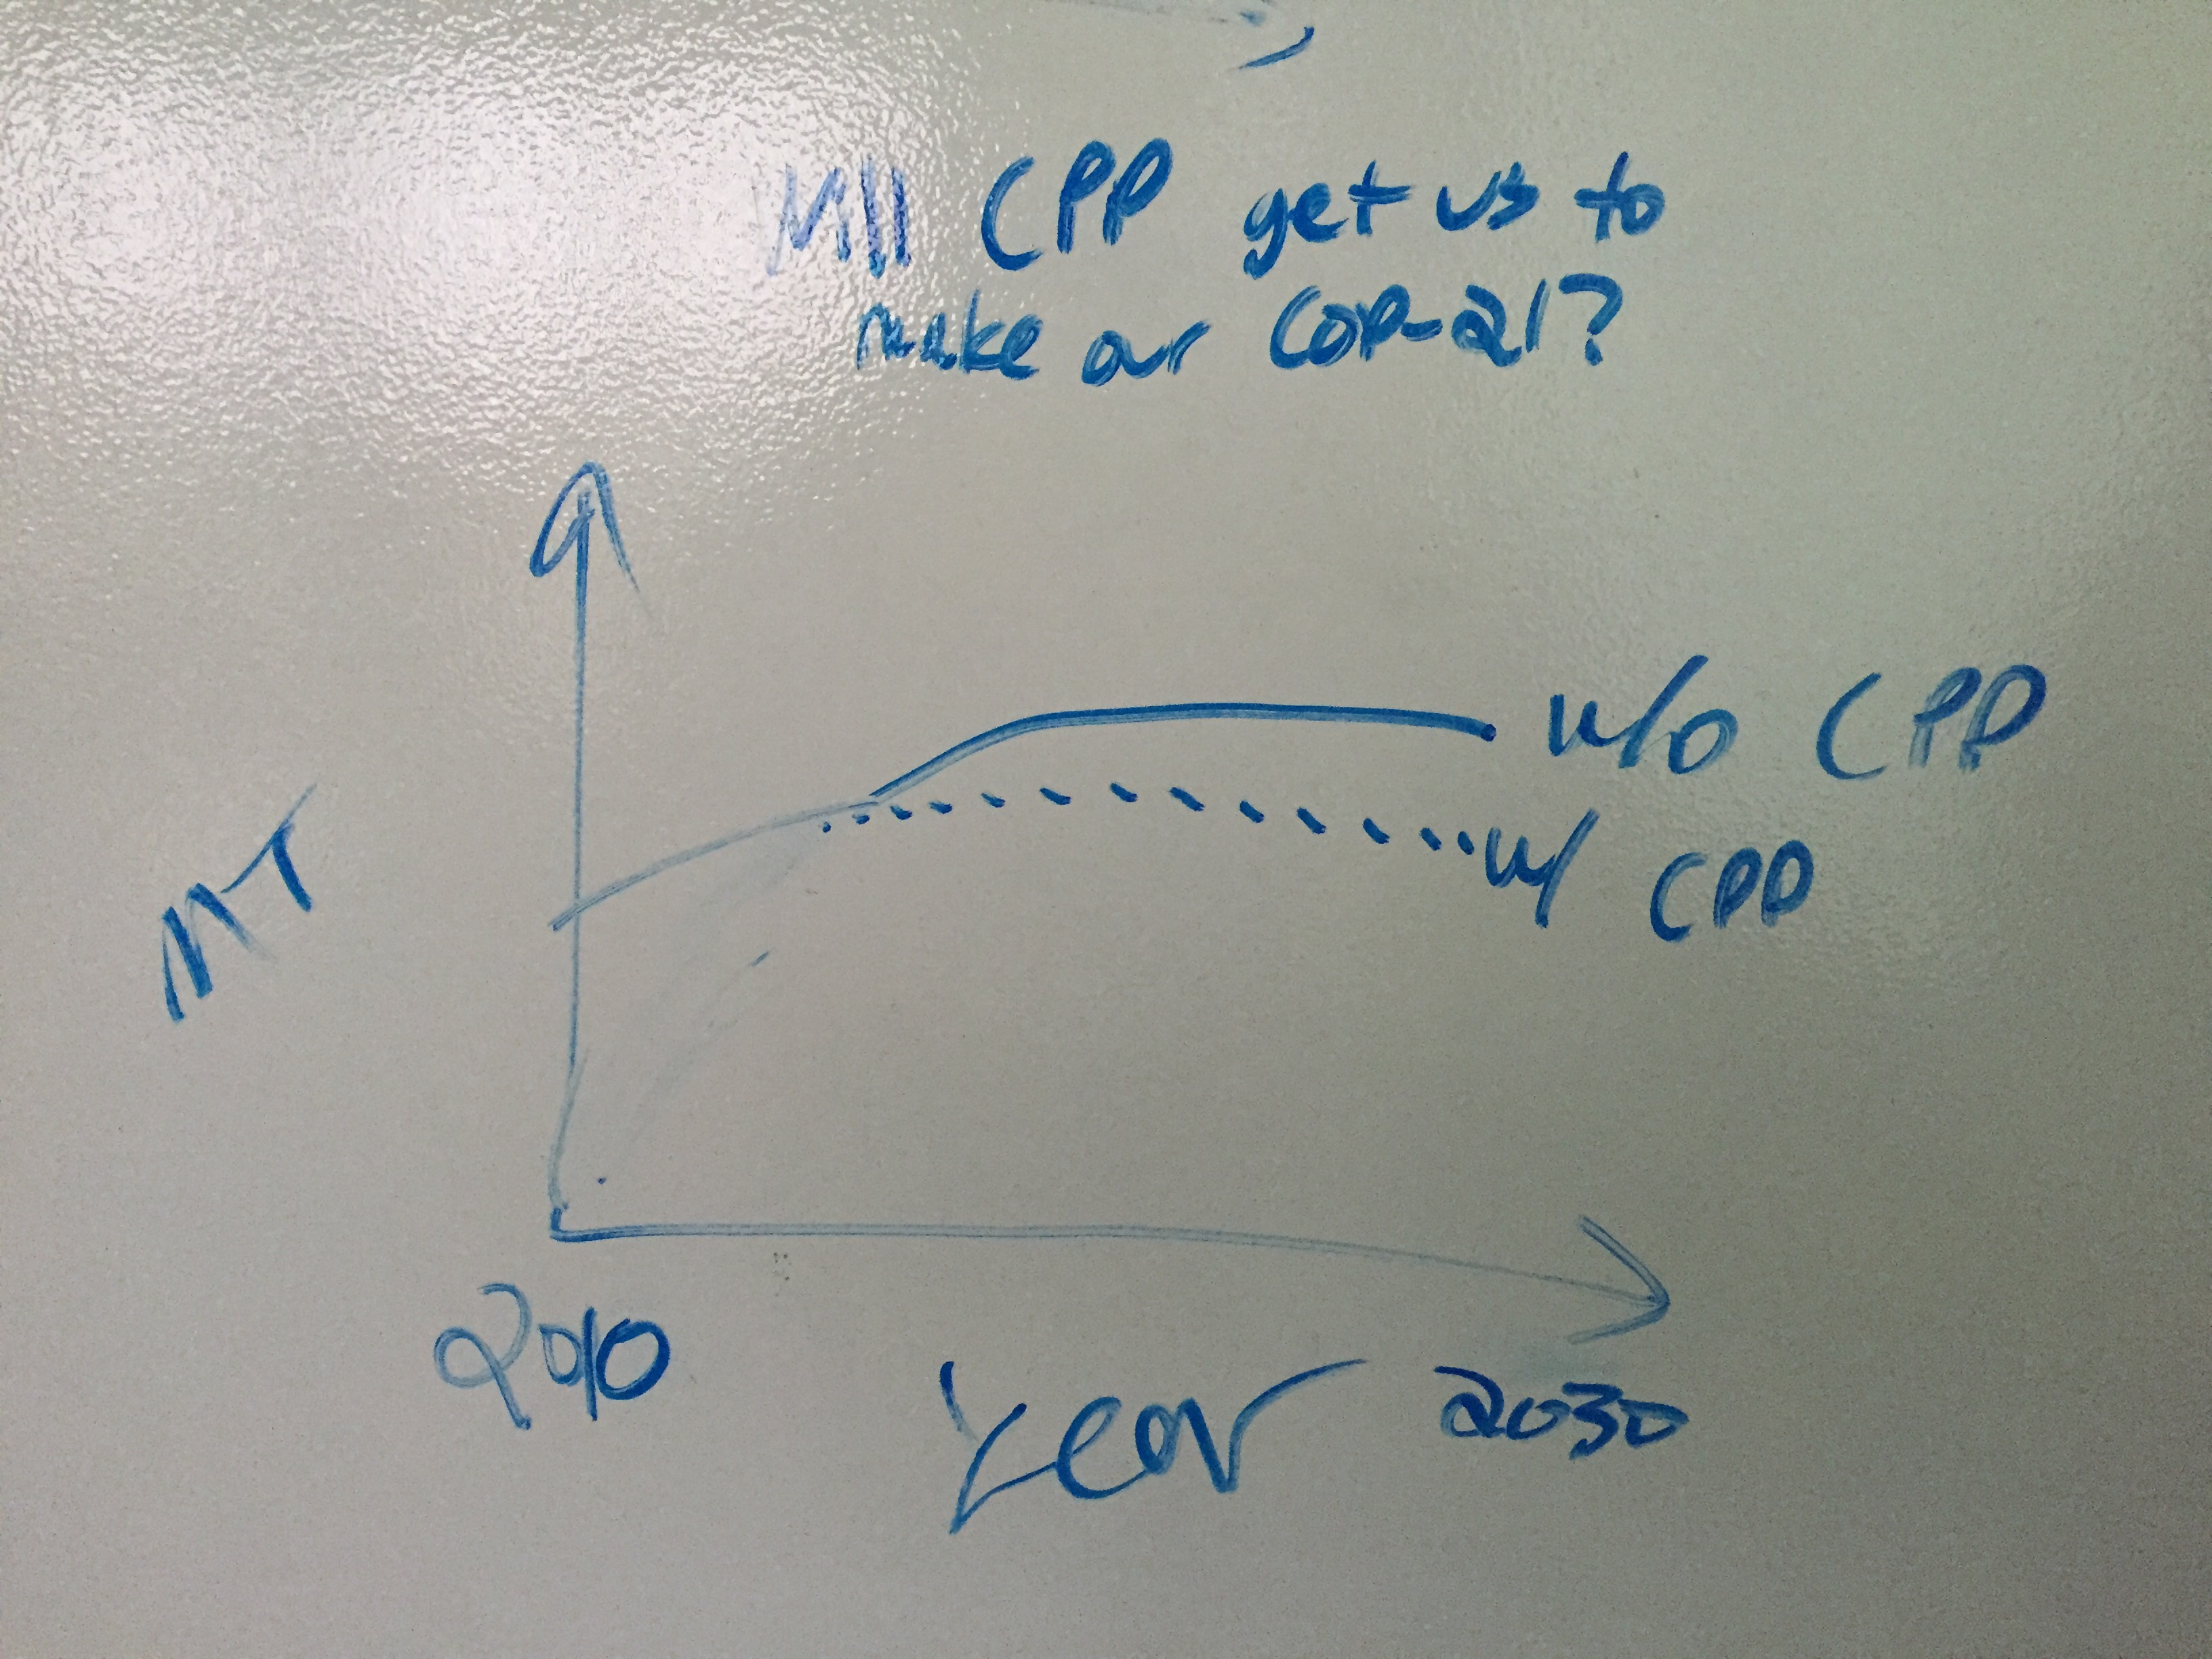 Will CPP get us to
make our COP-21?
w/o CPP
w/ CPP
MT
2010
Year
2030